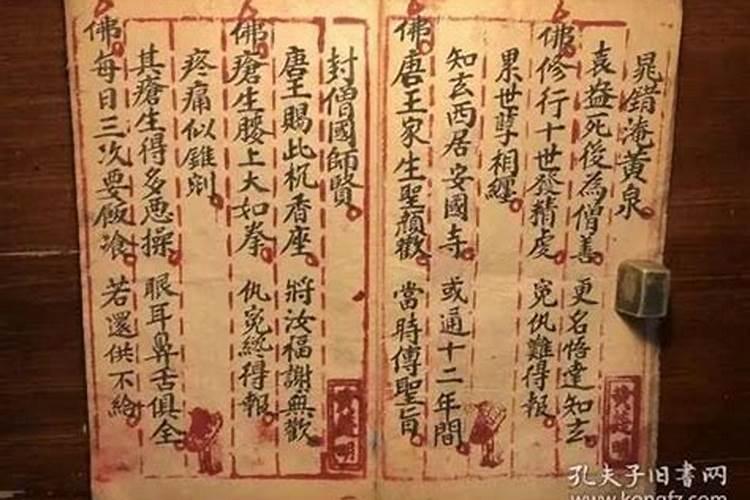 晁錯淹黄泉
袁盎死後為僧善 更名悟達知玄
佛修行十世發精虔 冤仇難得報
累世孽相纏
知玄西居安國寺 或通十二年間
佛唐王家生聖顏歡 當時傳聖旨
封僧國師賢
唐王賜此杌香座 將汝福謝無歡
佛瘡生腰上大如拳 仇冤總得報
疼痛似錐剜
其瘡生得多惡操 眼耳鼻舌俱全
佛每日三次要飯飡 若還供不給
孔夫子旧书网